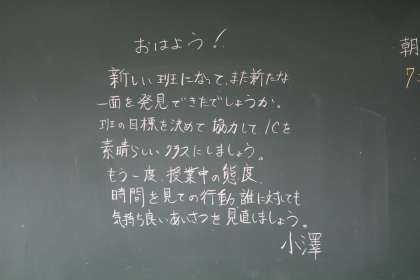 おはよう!
新しい班になって、また新たな
一面を発見できたでしょうか。
班の目標を決めて協力して1Cを
素晴らしいクラスにしましょう。
もう一度、授業中の態度、
時間を見ての行動、誰に対しても
気持ち良いあいさつを見直しましょう。
小澤
朝
7: